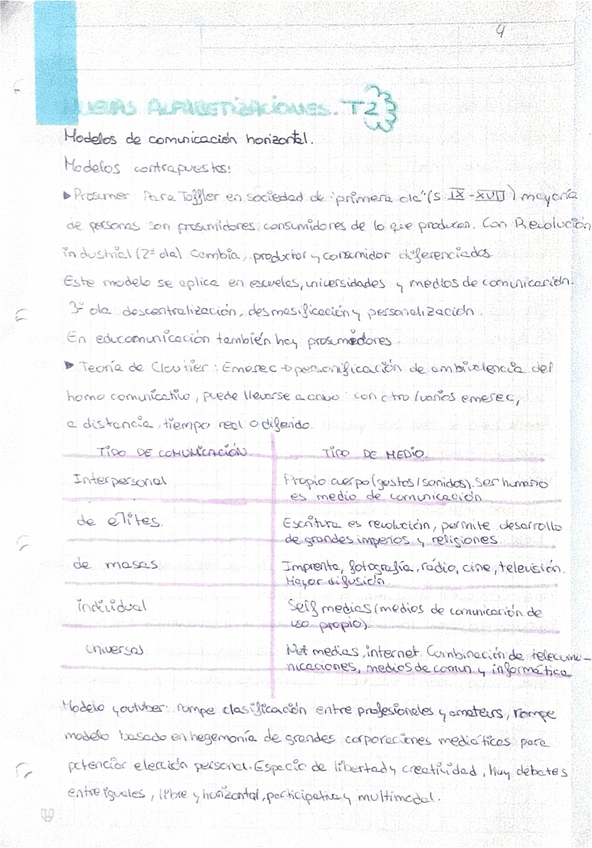 4
NUEVAS ALFABETIZACIONES. T2
Modelos de comunicación horizontal.
Modelos contrapuestos:
▶ Prosumer: Para Toffler en sociedad de "primera ola" (s IX-XVII) mayoría
de personas son prosumidores: consumidores de lo que producen. Con Revolución
industrial (2ª ola) cambia, productor y consumidor diferenciados.
Este modelo se aplica en escuelas, universidades y medios de comunicación.
3ª ola descentralización, desmasificación y personalización.
En educomunicación también hay prosumidores.
▶ Teoría de Cloutier: Emerec → personificación de ambivalencia del
homo comunicativo, puede llevarse a cabo con otro/varios emerec,
a distancia, tiempo real o diferido.
TIPO DE COMUNICACIÓN TIPO DE MEDIO
Interpersonal Propio cuerpo (gestos/sonidos). Ser humano
es medio de comunicación
de élites. Escritura es revolución, permite desarrollo
de grandes imperios y religiones
de masas Imprenta, fotografía, radio, cine, televisión.
Mayor difusión
individual Self medias (medios de comunicación de
uso propio)
universal Net medias, internet. Combinación de telecomu-
nicaciones, medios de comun. y informática
Modelo youtuber: rompe clasificación entre profesionales y amateurs, rompe
modelo basado en hegemonía de grandes corporaciones mediáticas para
potenciar elección personal. Espacio de libertad y creatividad, hay debates
entre iguales, libre y horizontal, participativa y multimodal.